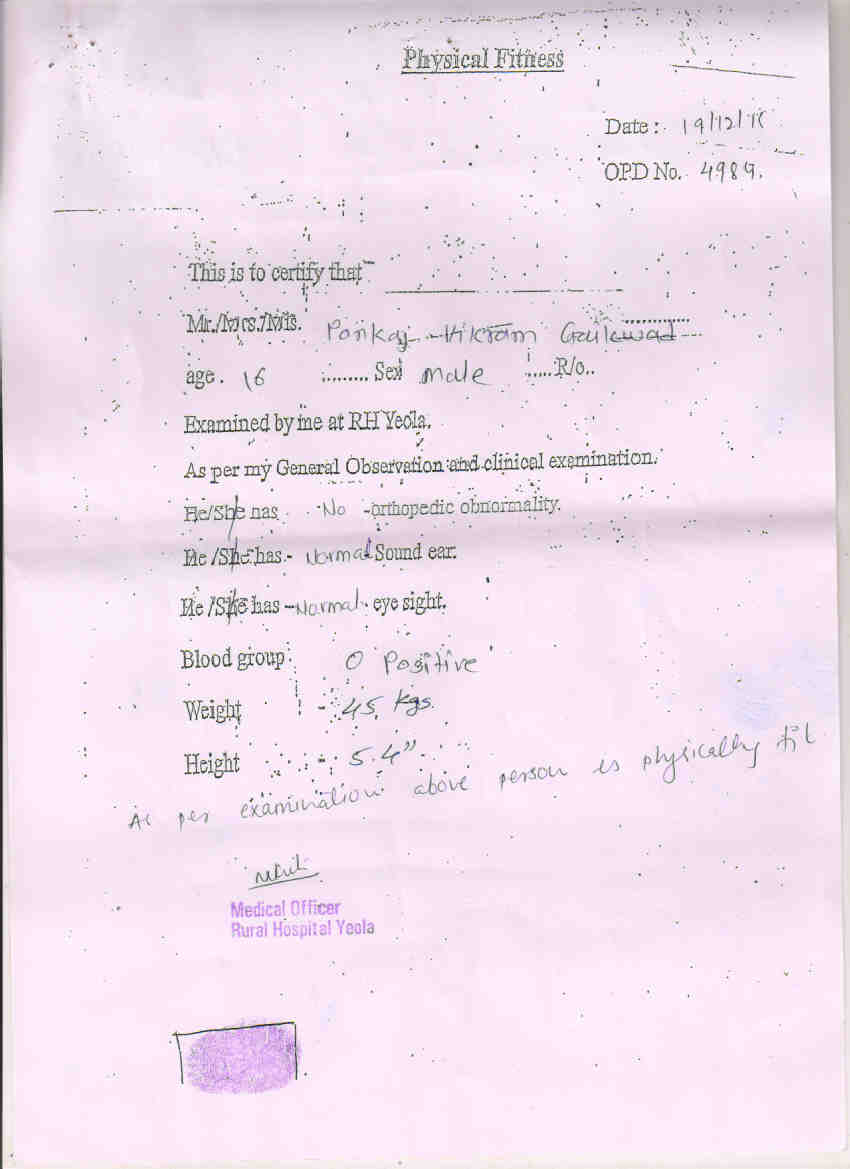 Physical Fitness
Date : 19/12/1
OPD No. 4989.
This is to certify that
Mr./Mrs./Mis. Pankaj Vikram Gaikwad
age. 16 ......... Sex male ..... R/o..
Examined by me at RH Yeola.
As per my General Observation and clinical examination.
He/She has No -orthopedic obnormality.
He /She has - Normal Sound ear.
He /She has - Normal - eye sight.
Blood group O Positive
Weight - 45 kgs.
Height - 5.4"
As per examination above person is physically fit
Medical Officer
Rural Hospital Yeola